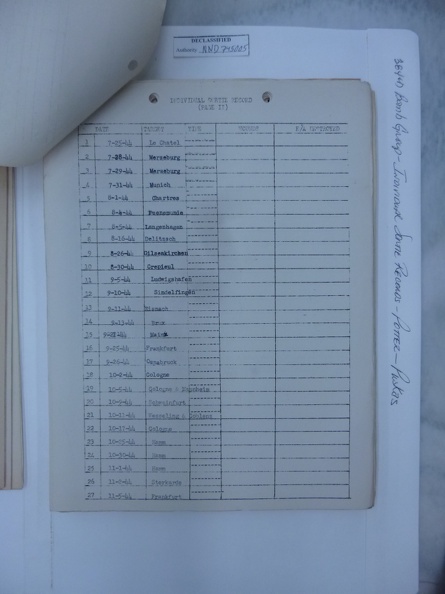 DECLASSIFIED
Authority NND 745005
INDIVIDUAL SORTIE RECORD
DATE TARGET TIME
1 7-25-44 Le Chatel
2 7-28-44 Merseburg
3 7-29-44 Merseburg
4 7-31-44 Munich
5 8-1-44 Chartres
6 8-4-44 Peenemunde
7 8-5-44 Langenhagen
8 8-16-44 Delitzsch
9 8-26-44 Gilsenkirchen
10 8-30-44 Crepieul
11 9-5-44 Ludwigshafen
12 9-10-44 Sindelfingen
13 9-11-44 Eisnach
14 9-13-44
15 Mainz
16 9-25-44 Frankfurt
17 9-26-44 Osnabruck
18 10-2-44 Cologne
19 10-5-44 Cologne &
20 10-9-44
21 Wesseling &
22 10-17-44 Cologne
23 10-25-44
24 10-30-44
25 11-1-44
26 Sterkrade
27 11-5-44 Frankfurt
384th Bomb Group - Individual Sortie Records - Potter - Puskas